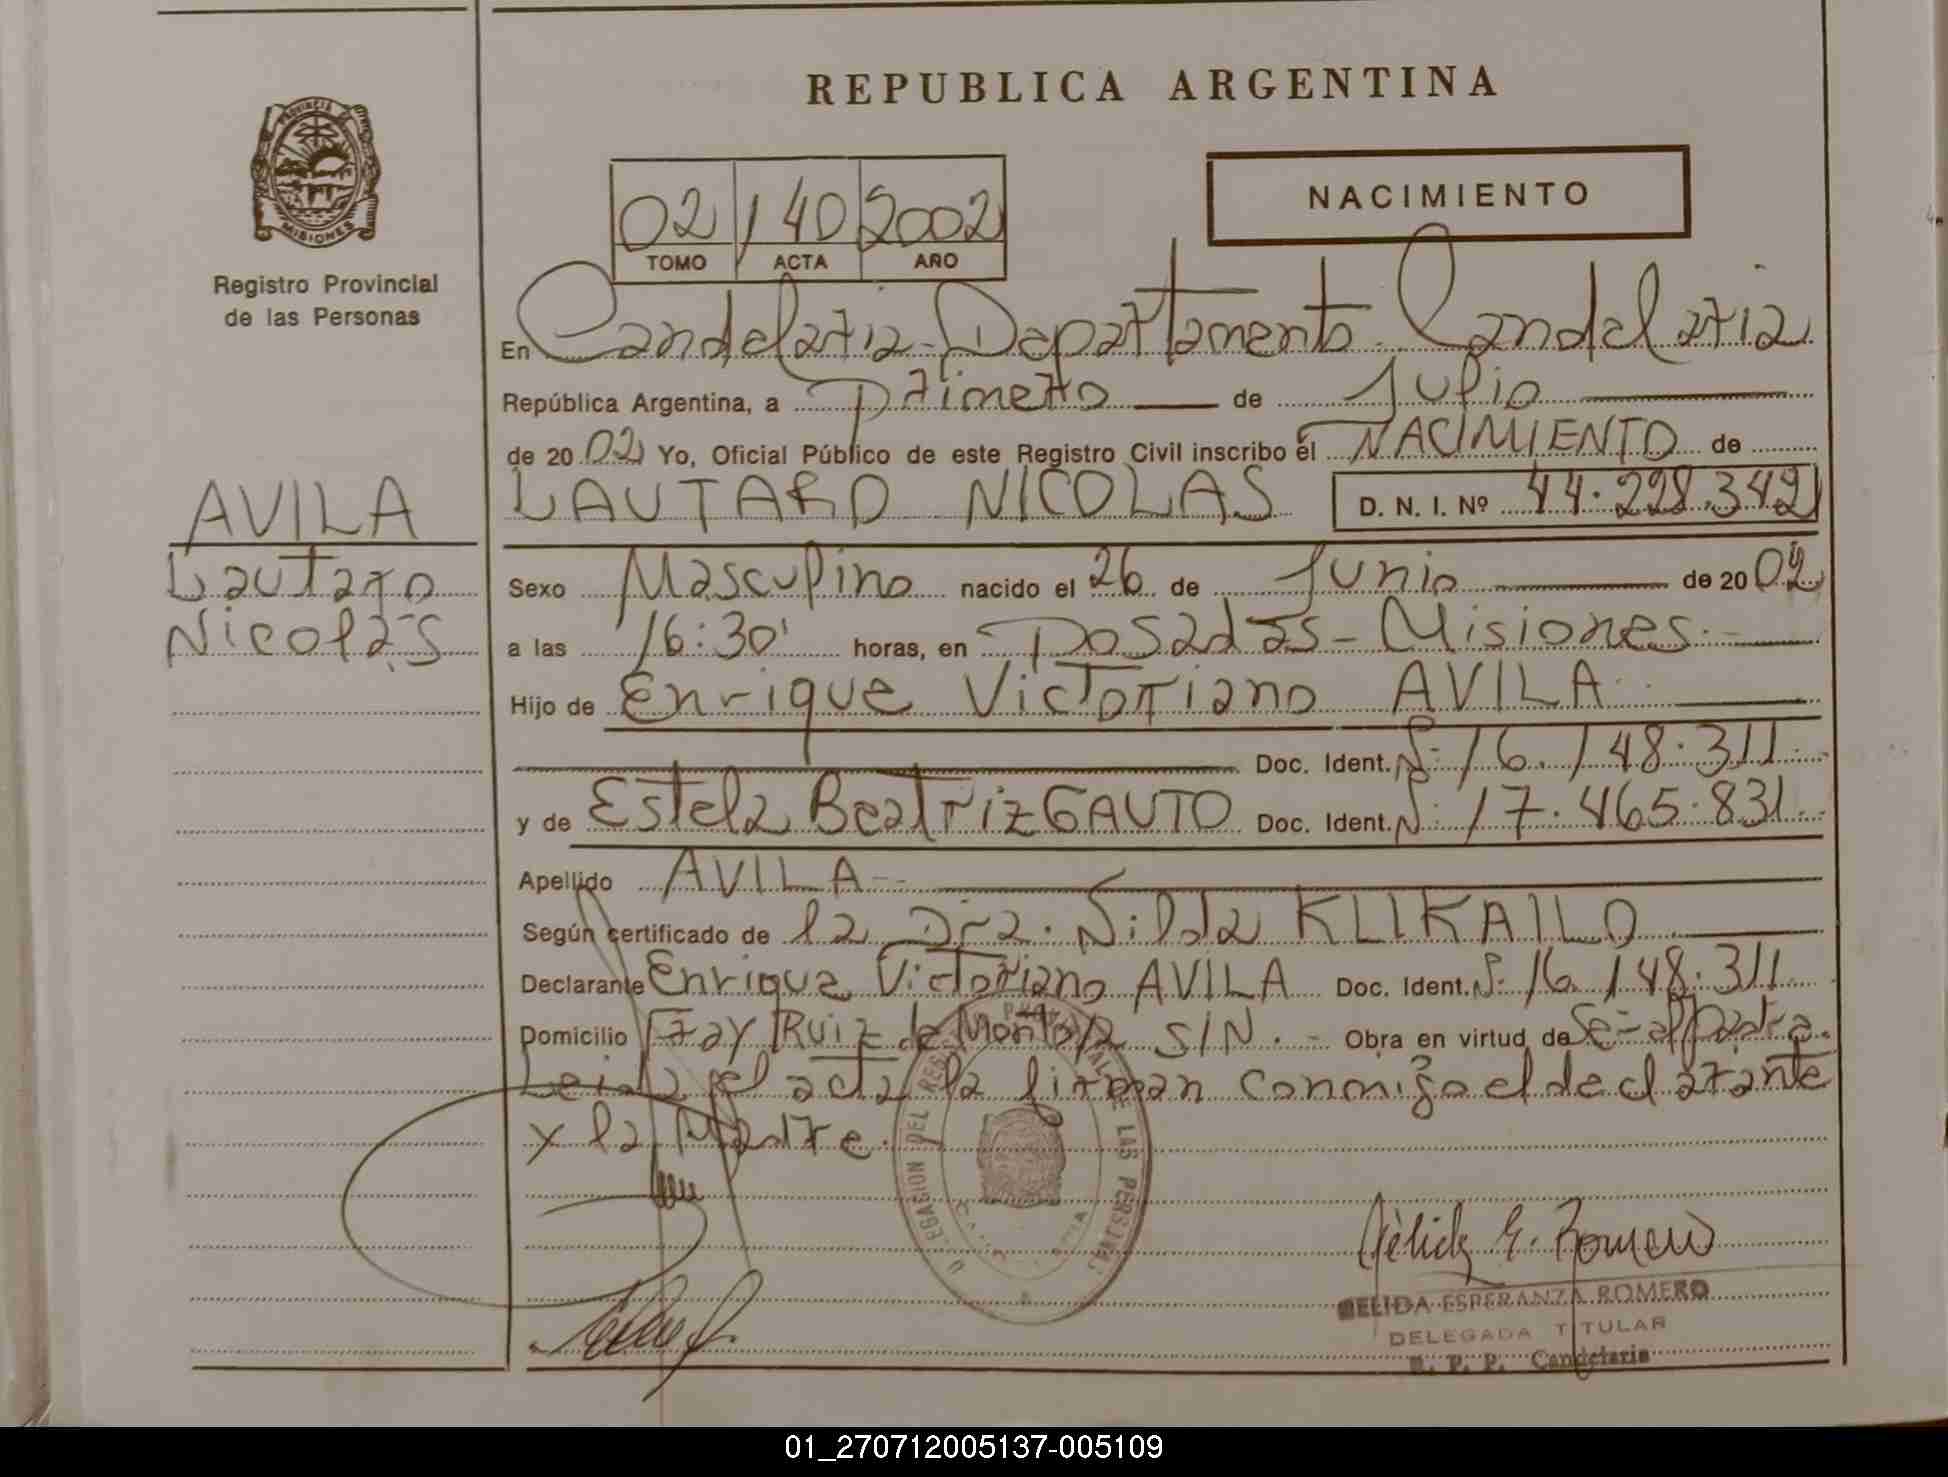 REPUBLICA ARGENTINA
PROVINCIA
MISIONES
Registro Provincial
de las Personas
NACIMIENTO
02 140 2002
TOMO ACTA AÑO
En Candelaria - Departamento Candelaria
República Argentina, a primero de Julio
de 2002 Yo, Oficial Público de este Registro Civil inscribo el NACIMIENTO de
AVILA
Lautaro
Nicolás
LAUTARO NICOLAS D. N. I. Nº 44.228.342
Sexo Masculino nacido el 26 de Junio de 2002
a las 16:30' horas, en Posadas - Misiones.-
Hijo de Enrique Victoriano AVILA
Doc. Ident. Nº 16.148.311
y de Estela Beatriz GAUTO Doc. Ident. Nº 17.465.831
Apellido AVILA
Según certificado de la Dra. Nilda KLIKAILO
Declarante Enrique Victoriano AVILA Doc. Ident. Nº 16.148.311
Domicilio Fray Ruiz de Montoya S/N.- Obra en virtud de
Leida el acta la firman conmigo el declarante
y la Madre.
DELEGACION DEL REGISTRO PROVINCIAL DE LAS PERSONAS
Délida E. Romero
DELIDA ESPERANZA ROMERO
DELEGADA TITULAR
R. P. P. Candelaria
01_270712005137-005109